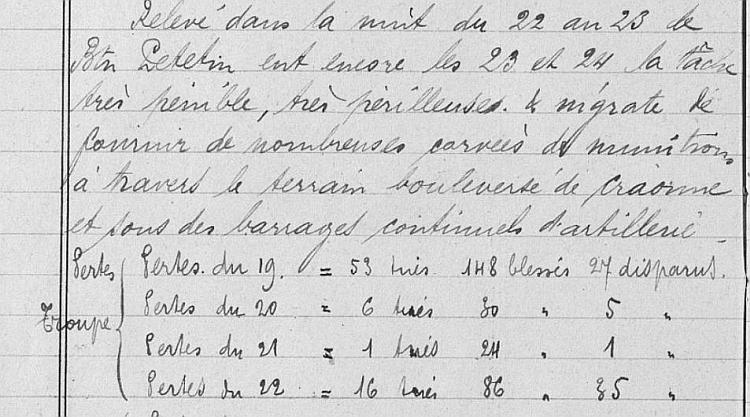 Relevé dans la nuit du 22 au 23 le
Btn Petetin eut encore les 23 et 24 la tâche
très pénible, très périlleuse. & ingrate de
fournir de nombreuses corvées de munitions
à travers le terrain bouleversé de Craonne
et sous des barrages continuels d'artillerie.
Pertes Troupe { Pertes. du 19. = 53 tués 148 blessés 27 disparus.
Pertes du 20 = 6 tués 30 " 5 "
Pertes du 21 = 1 tués 24 " 1 "
Pertes du 22 = 16 tués 86 " 35 "